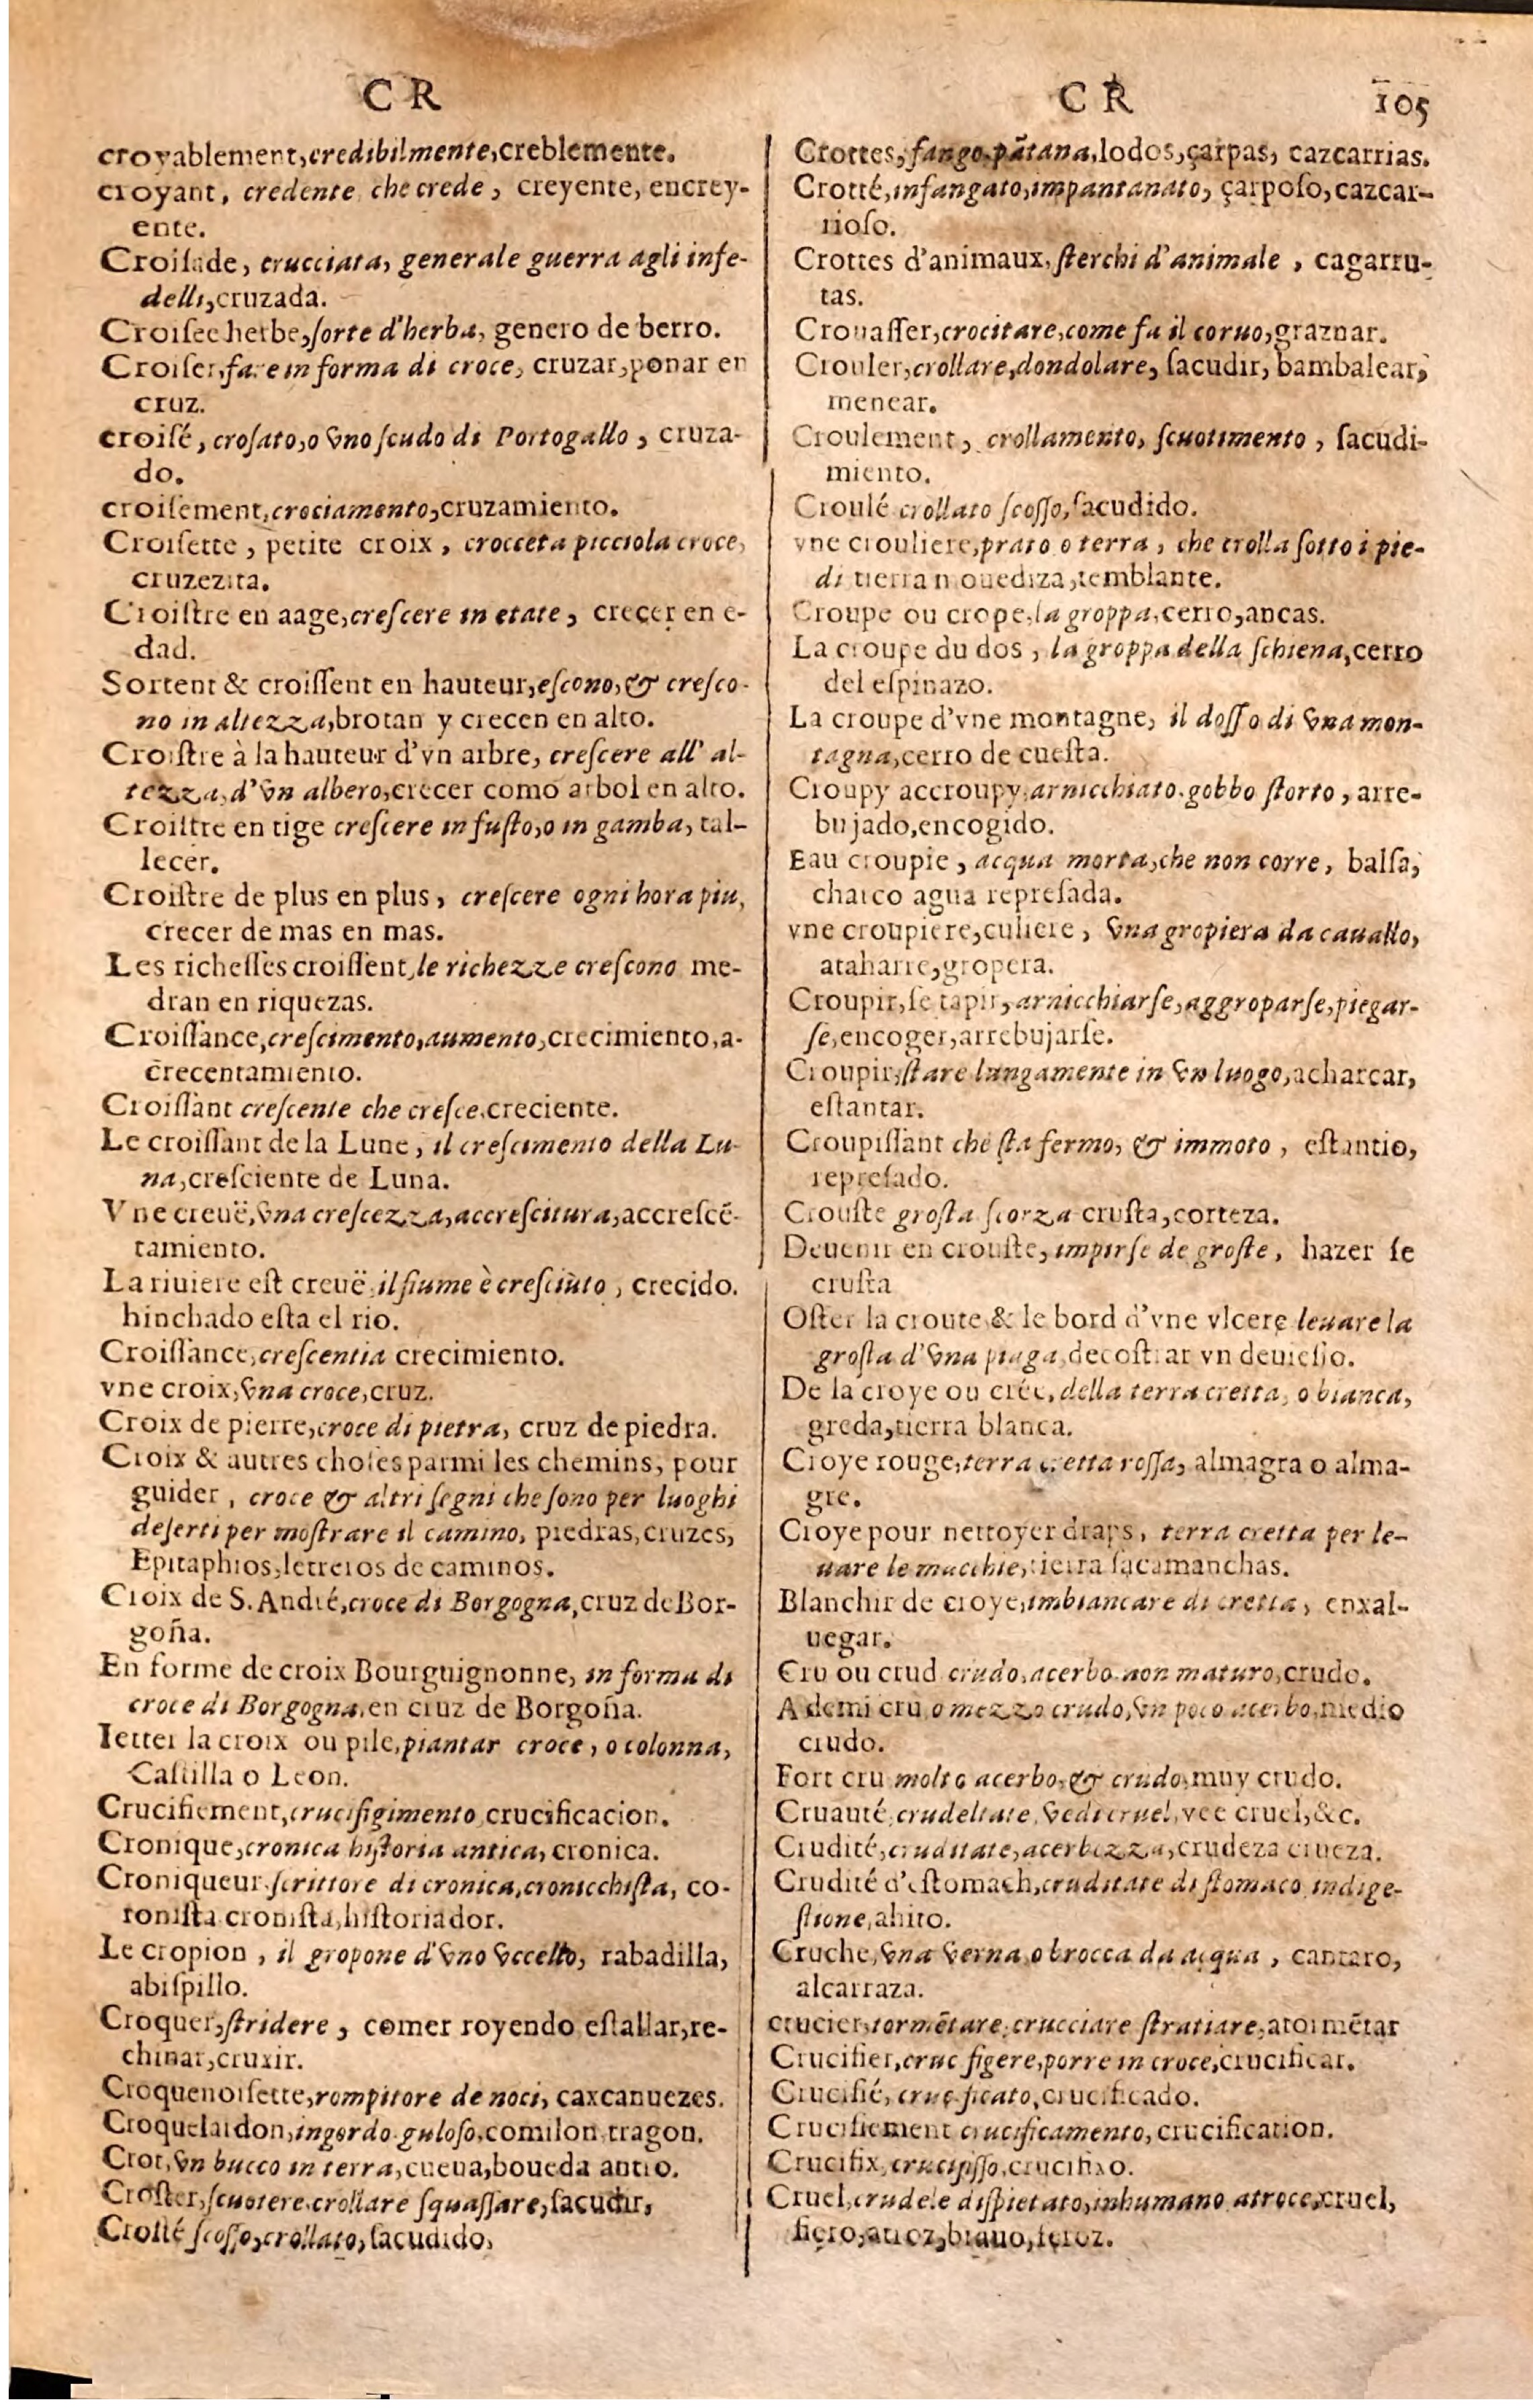 CR
croyablement,credibilmente,creblemente.
croyant, credente che crede, creyente, encrey-
ente.
Croiſade, crucciata, generale guerra agli infe-
delli,cruzada.
Croiſee herbe,ſorte d'herba, genero de berro.
Croiſer,fare in forma di croce, cruzar,ponar en
cruz.
croiſé, croſato,o vno ſcudo di Portogallo, cruza-
do.
croiſement,crociamento,cruzamiento.
Croiſette, petite croix, crocceta picciola croce,
cruzezita.
Croiſtre en aage,creſcere in etate, creçer en e-
dad.
Sortent & croiſſent en hauteur,eſcono,& creſco-
no in altezza,brotan y crecen en alto.
Croiſtre à la hauteur d'vn arbre, creſcere all' al-
tezza,d'vn albero,crecer como arbol en alto.
Croiſtre en tige creſcere in fuſto,o in gamba, tal-
lecer.
Croiſtre de plus en plus, creſcere ogni hora piu,
crecer de mas en mas.
Les richeſſes croiſſent,le richezze creſcono me-
dran en riquezas.
Croiſſance,creſcimento,aumento,crecimiento,a-
crecentamiento.
Croiſſant creſcente che creſce,creciente.
Le croiſſant de la Lune, il creſcimento della Lu-
na,creſciente de Luna.
Vne creuë,vna creſcezza,accreſcitura,accreſcē-
tamiento.
La riuiere eſt creuë,il fiume è creſciùto, crecido.
hinchado eſta el rio.
Croiſſance,creſcentia crecimiento.
vne croix,vna croce,cruz.
Croix de pierre,croce di pietra, cruz de piedra.
Croix & autres choſes parmi les chemins, pour
guider, croce & altri ſegni che ſono per luoghi
deſerti per moſtrare il camino, piedras,cruzes,
Epitaphios,letreros de caminos.
Croix de S. André,croce di Borgogna,cruz de Bor-
goña.
En forme de croix Bourguignonne, in forma di
croce di Borgogna,en cruz de Borgoña.
Ietter la croix ou pile,piantar croce, o colonna,
Caſtilla o Leon.
Crucifiement,crucifigimento,crucificacion.
Cronique,cronica hiſtoria antica, cronica.
Croniqueur,ſcrittore di cronica,cronicchiſta, co-
roniſta croniſta,hiſtoriador.
Le cropion, il gropone d'vno vccello, rabadilla,
abiſpillo.
Croquer,ſtridere, comer royendo eſtallar,re-
chinar,cruxir.
Croquenoiſette,rompitore de noci, caxcanuezes.
Croquelardon,ingordo guloſo,comilon,tragon.
Crot,vn bucco in terra,cueua,boueda antro.
Croſter,ſcuotere,crollare ſquaſſare,ſacudir,
Croſlé ſcoſſo,crollato,ſacudido,
CR 105
Crottes,fango,pātana,lodos,çarpas, cazcarrias.
Crotté,infangato,impantanato, çarpoſo,cazcar-
rioſo.
Crottes d'animaux,ſterchi d'animale, cagarru-
tas.
Crouaſſer,crocitare,come fa il coruo,graznar.
Crouler,crollare,dondolare, ſacudir, bambalear,
menear.
Croulement, crollamento, ſcuotimento, ſacudi-
miento.
Croulé crollato ſcoſſo,ſacudido.
vne crouliere,prato o terra, che crolla ſotto i pie-
di tierra mouediza,temblante.
Croupe ou crope,la groppa,cerro,ancas.
La croupe du dos, la groppa della ſchiena,cerro
del eſpinazo.
La croupe d'vne montagne, il doſſo di vna mon-
tagna,cerro de cueſta.
Croupy accroupy,arnicchiato,gobbo ſtorto, arre-
bujado,encogido.
Eau croupie, acqua morta,che non corre, balſa,
charco agua repreſada.
vne croupiere,culiere, vna gropiera da cauallo,
ataharre,gropera.
Croupir,ſe tapir,arnicchiarſe,aggroparſe,piegar-
ſe,encoger,arrebujarſe.
Croupir,ſtare lungamente in vn luogo,acharcar,
eſtantar.
Croupiſſant che ſta fermo, & immoto, eſtantio,
repreſado.
Crouſte groſta ſcorza cruſta,corteza.
Deuenir en crouſte, impirſe de groſte, hazer ſe
cruſta
Oſter la croute & le bord d'vne vlcere leuare la
groſta d'vna piaga,decoſtrar vn deuieſſo.
De la croye ou crée,della terra cretta, o bianca,
greda,tierra blanca.
Croye rouge,terra cretta roſſa, almagra o alma-
gre.
Croye pour nettoyer draps, terra cretta per le-
uare le macchie,tierra ſacamanchas.
Blanchir de croye,imbiancare di cretta, enxal-
uegar.
Cru ou crud crudo,acerbo non maturo,crudo.
A demi cru,o mezzo crudo,vn poco acerbo,medio
crudo.
Fort cru molto acerbo,& crudo,muy crudo.
Cruauté,crudeltate,vedi cruel,vee cruel,&c.
Crudité,cruditate,acerbezza,crudeza crueza.
Crudité d'eſtomach,cruditate di ſtomaco,indige-
ſtione,ahito.
Cruche,vna verna,o brocca da acqua, cantaro,
alcarraza.
crucier,tormētare,crucciare ſtratiare,atormētar
Crucifier,cruc figere,porre in croce,crucificar.
Crucifié, cruc ficato,crucificado.
Crucifiement crucificamento,crucification.
Crucifix,crucifiſſo,crucifixo.
Cruel,crudele diſpietato,inhumano atroce,cruel,
fiero,atroz,brauo,feroz.